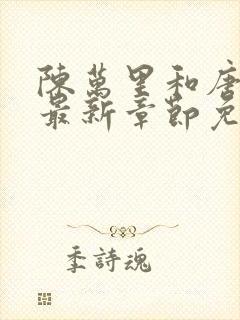 陳萬里和唐
最新章節免
季詩魂